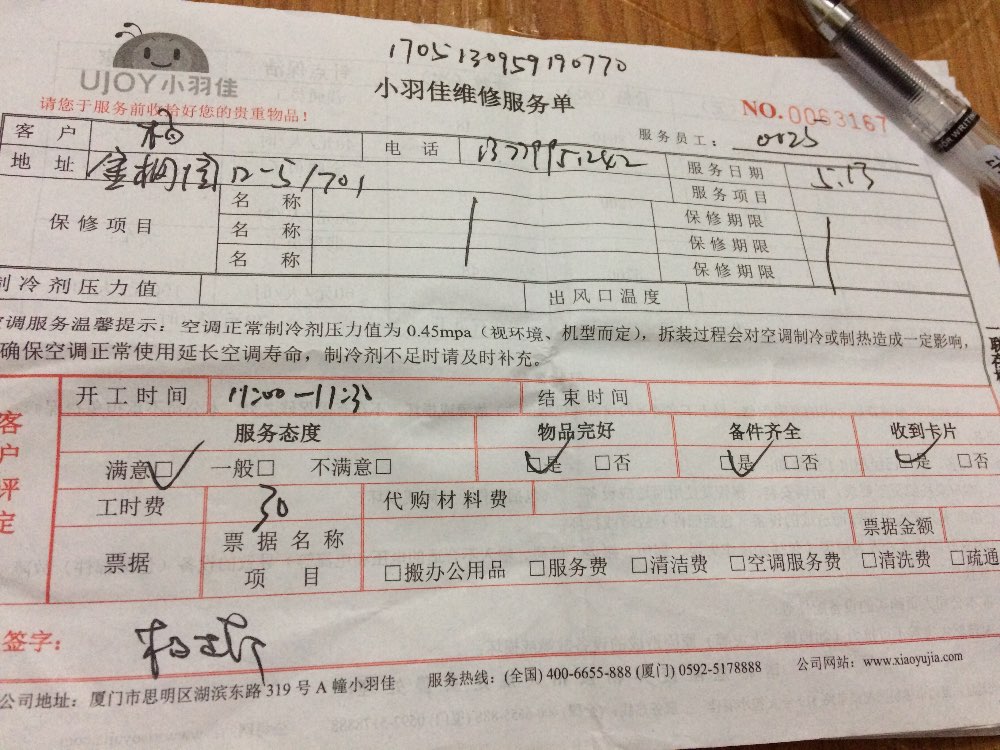 1705130959190770
UJOY小羽佳
小羽佳维修服务单
NO.0063167
请您于服务前收拾好您的贵重物品!
服务员工: 0025
客户 杨 电话 服务日期 5.13
地址 D-5/701 服务项目
保修项目 名称 保修期限
名称 保修期限
名称 保修期限
制冷剂压力值 出风口温度
空调服务温馨提示:空调正常制冷剂压力值为 0.45mpa(视环境、机型而定),拆装过程会对空调制冷或制热造成一定影响,
确保空调正常使用延长空调寿命,制冷剂不足时请及时补充。
客户评定
开工时间 11:00-11:30 结束时间
服务态度 物品完好 备件齐全 收到卡片
满意☑ 一般□ 不满意□ ☑是 □否 ☑是 □否 ☑是 □否
工时费 30 代购材料费
票据 票据名称 票据金额
项目 □搬办公用品 □服务费 □清洁费 □空调服务费 □清洗费 □疏通
签字:
公司地址:厦门市思明区湖滨东路 319 号 A 幢小羽佳 服务热线:(全国) 400-6655-888 (厦门) 0592-5178888 公司网站:www.xiaoyujia.com